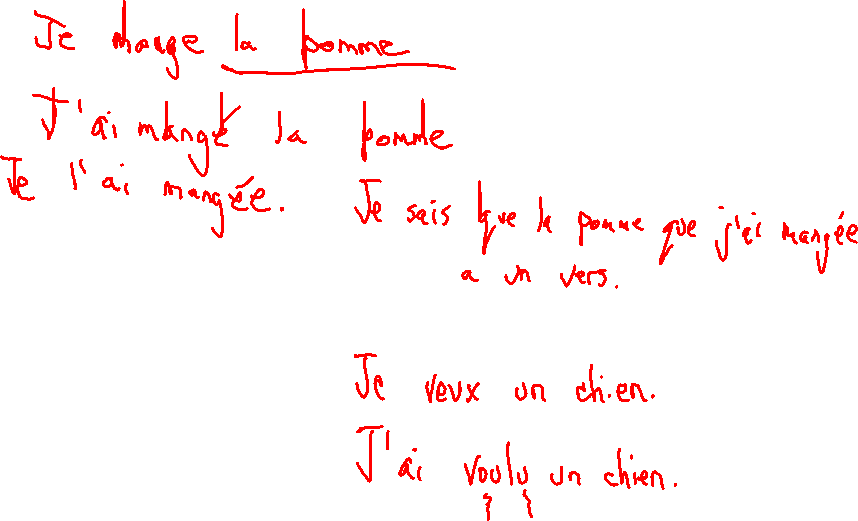 Je mange la pomme
J'ai mangé la pomme
Je l'ai mangée.
Je sais que la pomme que j'ai mangée
a un vers.
Je veux un chien.
J'ai voulu un chien.